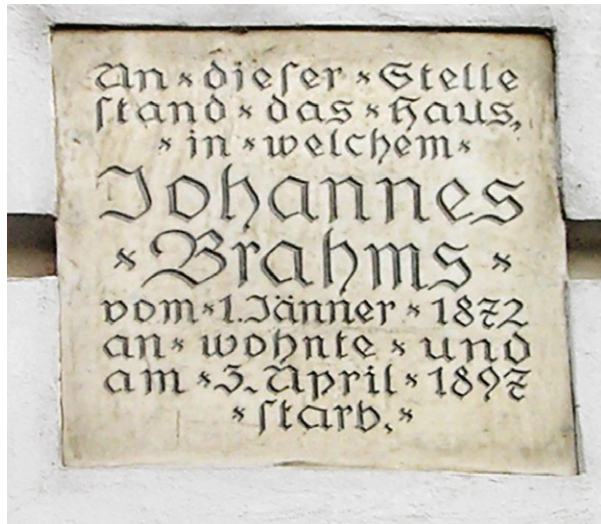 An × dieſer × Stelle
ſtand × das × Haus,
× in × welchem ×
Johannes
× Brahms ×
vom × 1. Jänner × 1872
an × wohnte × und
am × 3. April × 1897
× ſtarb. ×